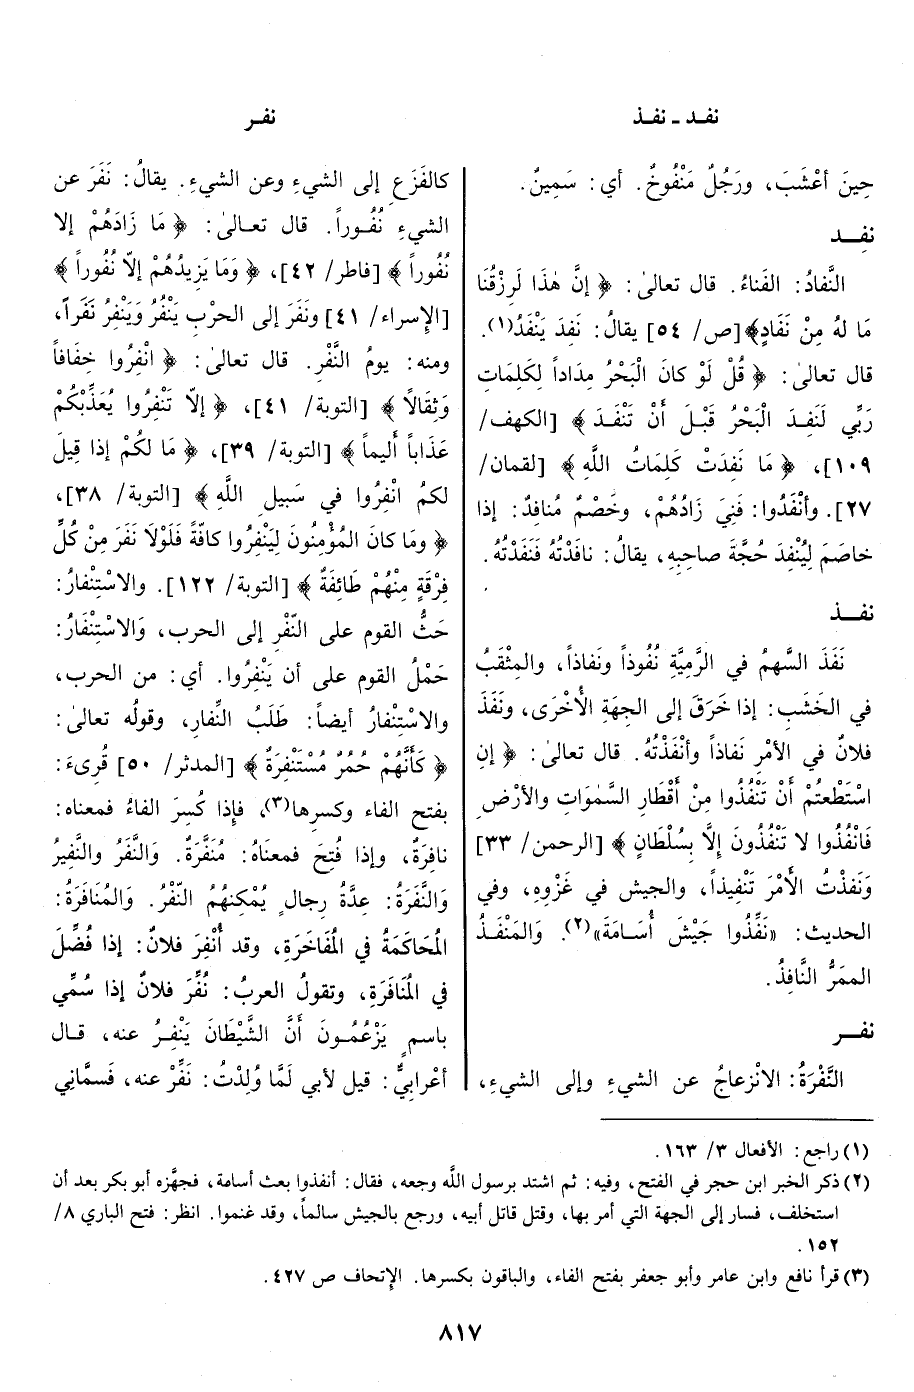 نفد ـ نفذ
نفر
حِينَ أعْشَبَ، ورَجُلٌ مَنْفُوخٌ. أي: سَمِينٌ.
نفد
النَّفادُ: الفَناءُ. قال تعالىٰ: ﴿ إنَّ هٰذَا لَرِزْقُنَا
مَا لهُ مِنْ نَفَادٍ﴾[ص/ ٥٤] يقالُ: نَفِدَ يَنْفَدُ(١).
قال تعالىٰ: ﴿ قُلْ لَوْ كانَ الْبَحْرُ مِدَاداً لِكَلِمَاتِ
رَبِّي لَنَفِدَ الْبَحْرُ قَبْلَ أَنْ تَنْفَدَ ﴾ [الكهف/
١٠٩]، ﴿ مَا نَفِدَتْ كَلِمَاتُ اللَّهِ﴾ [لقمان/
٢٧]. وأنْفَدُوا: فَنِيَ زَادُهُمْ، وخَصْمٌ مُنافِدٌ: إذا
خاصَمَ لِيُنْفِدَ حُجَّةَ صاحِبِهِ، يقالُ: نافَدْتُهُ فَنَفَدْتُهُ.
نفذ
نَفَذَ السَّهمُ في الرَّمِيَّةِ نُفُوذاً ونَفاذاً، والمِثْقَبُ
في الخَشَبِ: إذا خَرَقَ إلى الجهَةِ الأُخْرَى، ونَفَذَ
فلانٌ في الأمْرِ نَفاذاً وأنْفَذْتُهُ. قال تعالىٰ: ﴿ إنِ
اسْتَطَعْتُمْ أَنْ تَنْفُذُوا مِنْ أَقْطَارِ السَّمٰوَاتِ والأرْضِ
فَانْفُذُوا لا تَنْفُذُونَ إلَّا بِسُلْطَانٍ ﴾ [الرحمن/ ٣٣]
وَنَفذْتُ الأَمْرَ تَنْفِيذاً، والجيش في غَزْوِهِ، وفي
الحديث: «نَفِّذُوا جَيْشَ أُسَامَةَ»(٢). وَالمَنْفَذُ
الممَرُّ النَّافِذُ.
نفر
النَّفْرَةُ: الانْزِعاجُ عن الشيءِ وإلى الشيءِ،
كالفَزَعِ إلى الشيءِ وعن الشيءِ. يقالُ: نَفَرَ عن
الشيءِ نُفُوراً. قال تعالىٰ: ﴿ مَا زَادَهُمْ إلا
نُفُوراً ﴾ [فاطر/ ٤٢]، ﴿ وَمَا يَزِيدُهُمْ إلَّا نُفُوراً ﴾
[الإسراء/ ٤١] ونَفَرَ إلى الحرْبِ يَنْفُرُ وَيَنْفِرُ نَفَراً،
ومنه: يومُ النَّفْرِ. قال تعالىٰ: ﴿ انْفِرُوا خِفَافاً
وَثِقَالًا ﴾ [التوبة/ ٤١]، ﴿ إلّا تَنْفِرُوا يُعَذِّبْكُمْ
عَذَاباً أَلِيماً ﴾ [التوبة/ ٣٩]، ﴿ مَا لكُمْ إذا قِيلَ
لكمُ انْفِرُوا في سَبيلِ اللَّهِ﴾ [التوبة/ ٣٨]،
﴿ ومَا كانَ المُؤْمِنُونَ لِيَنْفِرُوا كافّةً فَلَوْلَا نَفَرَ مِنْ كُلِّ
فِرْقَةٍ مِنْهُمْ طَائِفَةٌ ﴾ [التوبة/ ١٢٢]. والاسْتِنْفارُ:
حَثُّ القومِ على النَّفْرِ إلى الحربِ، وَالاسْتِنْفَارُ:
حَمْلُ القومِ على أن يَنْفِرُوا. أي: من الحربِ،
والاسْتِنْفارُ أيضاً: طَلَبُ النِّفارِ، وقولُه تعالىٰ:
﴿ كَأَنَّهُمْ حُمُرٌ مُسْتَنْفِرَةٌ ﴾ [المدثر/ ٥٠] قُرِىءَ:
بفتحِ الفاء وكسرِها(٣)، فإذا كُسِرَ الفاءُ فمعناه:
نافِرَةٌ، وإذا فُتِحَ فمعناهُ: مُنَفَّرَةٌ. وَالنَّفَرُ والنَّفِيرُ
وَالنَّفَرَةُ: عِدَّةُ رِجالٍ يُمْكِنهُمُ النَّفْرُ. وَالمُنَافَرَةُ:
المُحَاكَمَةُ في المُفَاخَرَةِ، وقد أُنْفِرَ فلانٌ: إذا فُضِّلَ
في المُنَافَرَةِ، وتقولُ العربُ: نُفِّرَ فلانٌ إذا سُمِّي
باسمٍ يَزْعُمُونَ أَنَّ الشَّيْطَانَ يَنْفِرُ عنه، قال
أعْرابيٌّ: قيل لأبي لَمَّا وُلِدْتُ: نَفِّرْ عنه، فَسمَّاني
(١) راجع: الأفعال ٣/ ١٦٣.
(٢) ذكر الخبر ابن حجر في الفتح، وفيه: ثم اشتد برسول اللَّه وجعه، فقال: أنفذوا بعث أسامة، فجهَّزه أبو بكر بعد أن
استخلف، فسار إلى الجهة التي أمر بها، وقتل قاتل أبيه، ورجع بالجيش سالماً، وقد غنموا. انظر: فتح الباري ٨/
١٥٢.
(٣) قرأ نافع وابن عامر وأبو جعفر بفتح الفاء، والباقون بكسرها. الإتحاف ص ٤٢٧.
٨١٧